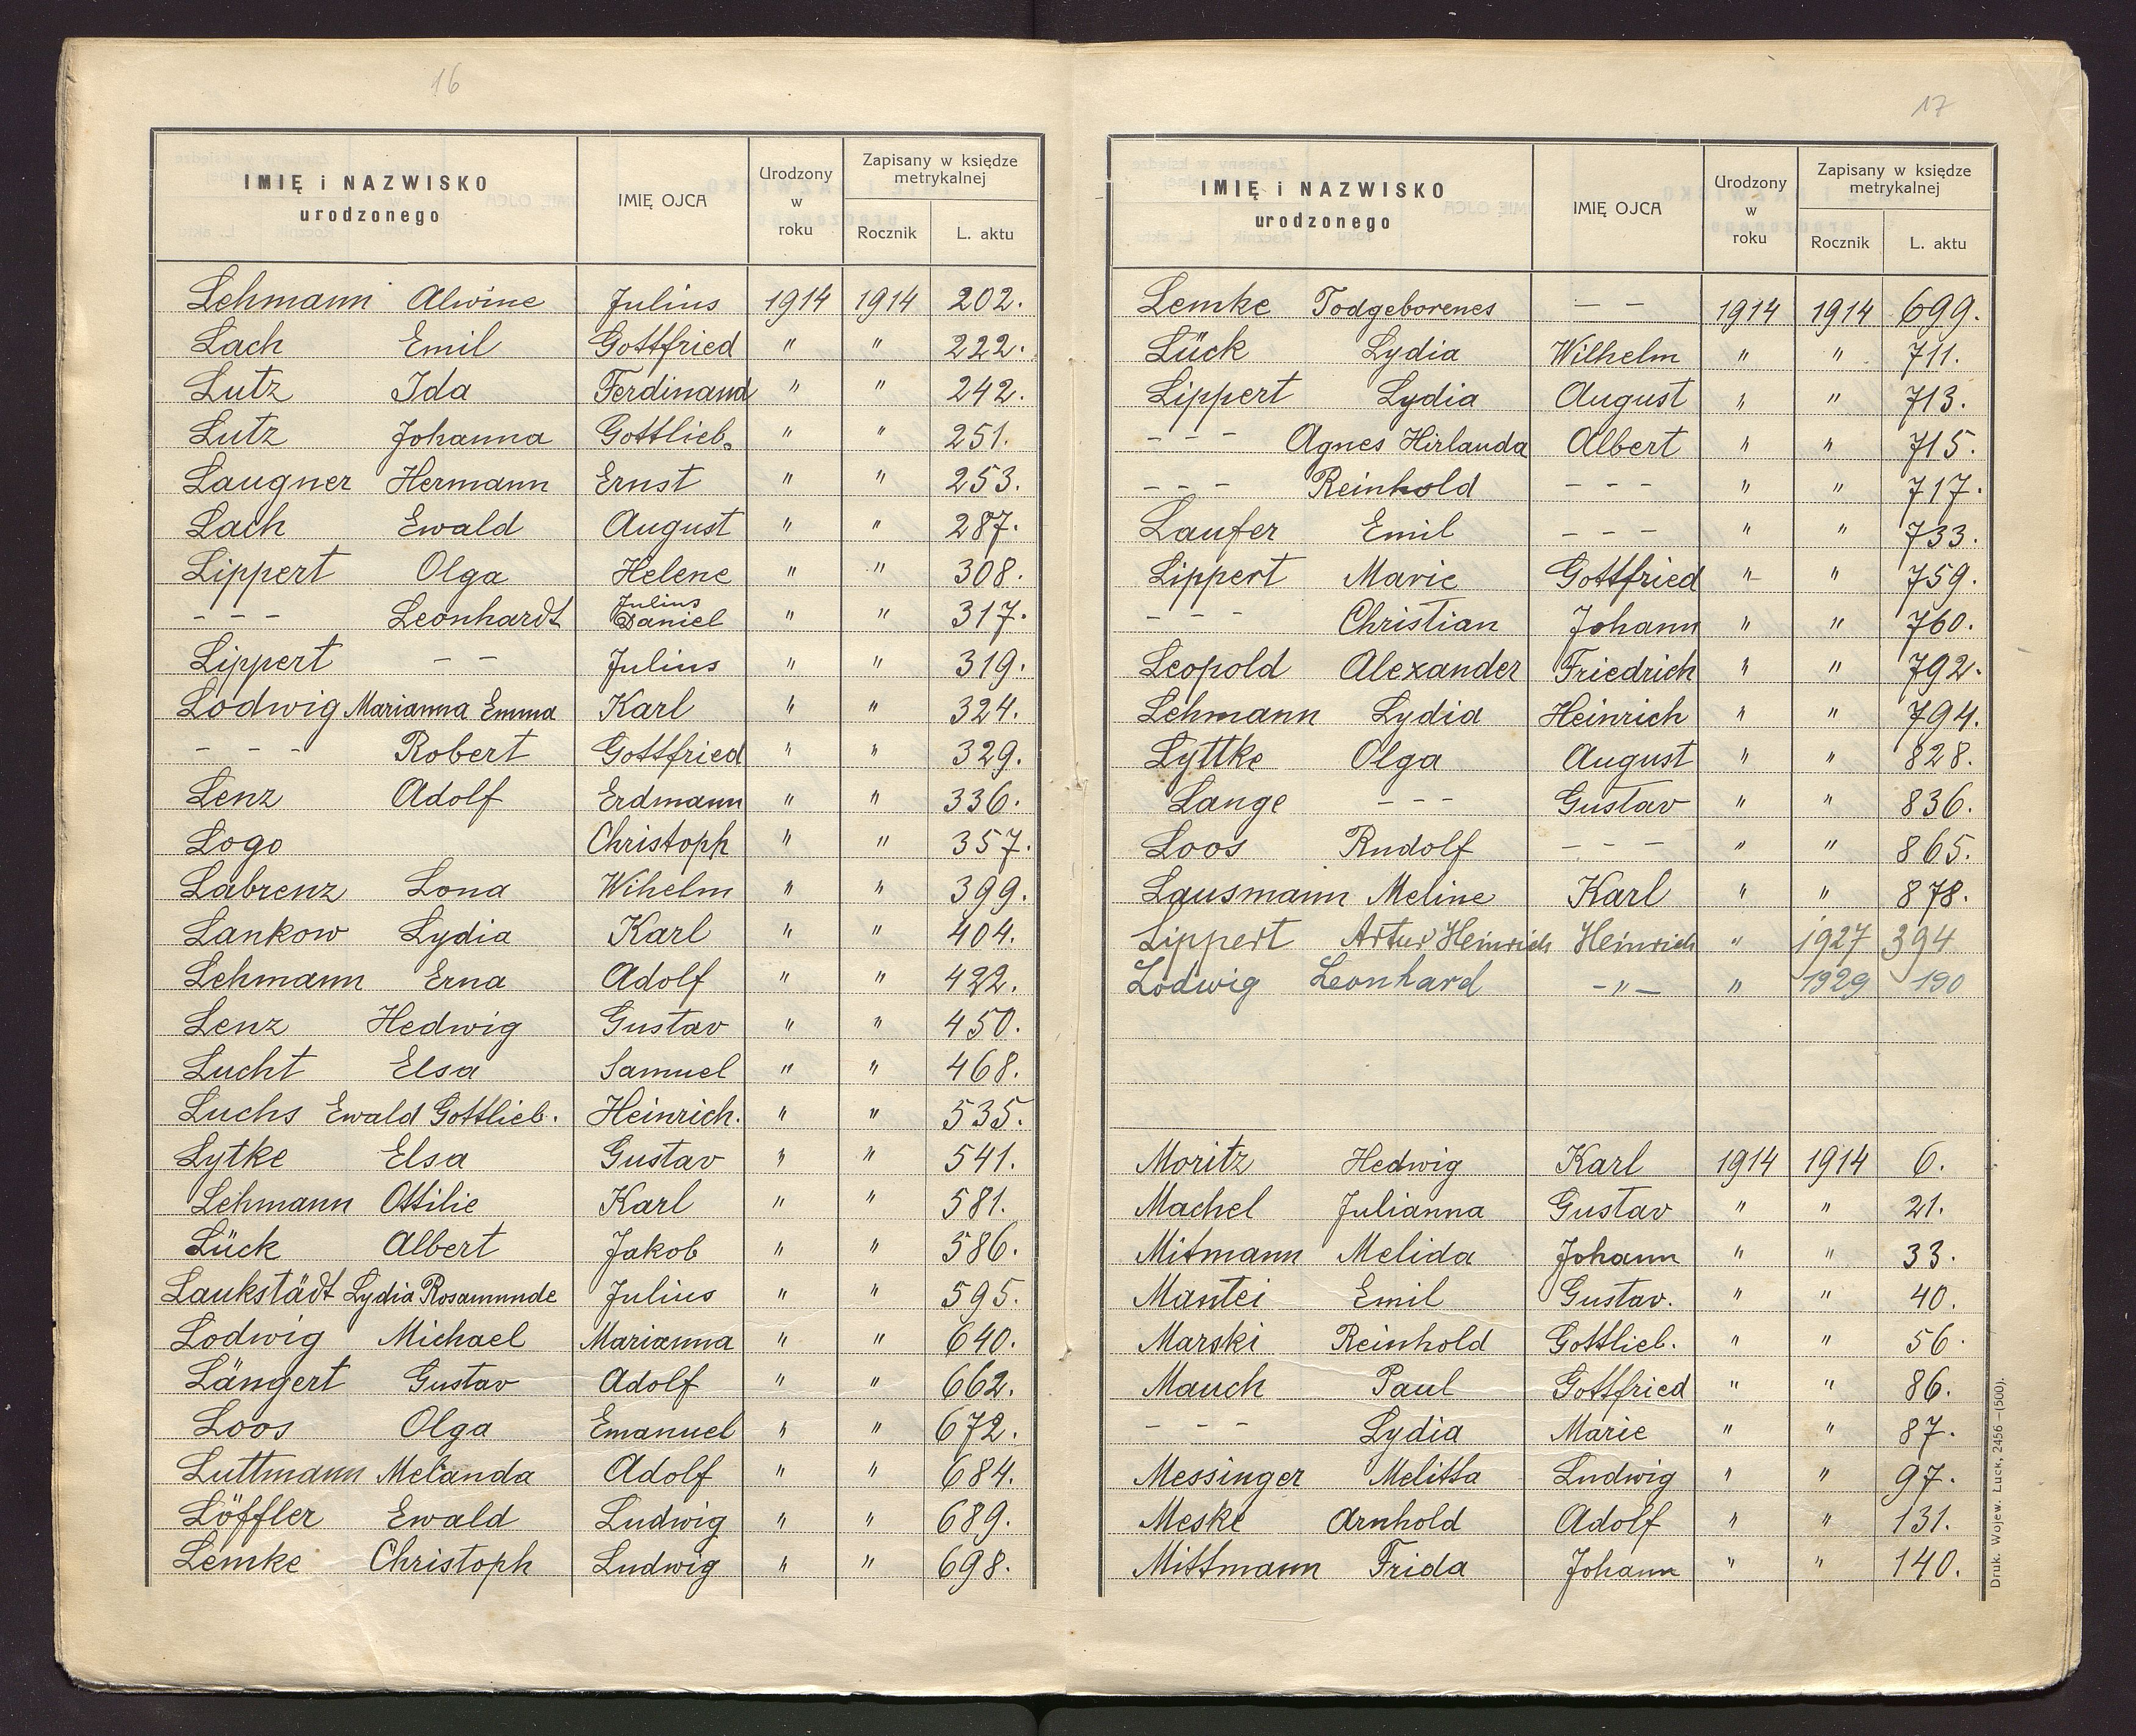 16
IMIĘ i NAZWISKO urodzonego IMIĘ OJCA Urodzony w roku Zapisany w księdze metrykalnej Rocznik L. aktu
Lehmann Alwine Julius 1914 1914 202.
Lach Emil Gottfried " " 222.
Lutz Ida Ferdinand " " 242.
Lutz Johanna Gottlieb. " " 251.
Laugner Hermann Ernst " " 253.
Lach Ewald August " " 287.
Lippert Olga Helene " " 308.
- - - Leonhardt Julius Daniel " " 317.
Lippert - - Julius " " 319.
Lodwig Marianna Emma Karl " " 324.
- - - Robert Gottfried " " 329.
Lenz Adolf Erdmann " " 336.
Logo Christoph " " 357.
Labrenz Lona Wihelm " " 399.
Lankow Lydia Karl " " 404.
Lehmann Erna Adolf " " 422.
Lenz Hedwig Gustav " " 450.
Lucht Elsa Samuel " " 468.
Luchs Ewald Gottlieb. Heinrich. " " 535.
Lytke Elsa Gustav " " 541.
Lehmann Ottilie Karl " " 581.
Lück Albert Jakob " " 586.
Laukstädt Lydia Rosamunde Julius " " 595.
Lodwig Michael Marianna " " 640.
Längert Gustav Adolf " " 662.
Loos Olga Emanuel " " 672.
Luttmann Melanda Adolf " " 684.
Löffler Ewald Ludwig " " 689.
Lemke Christoph Ludwig " " 698.
17
IMIĘ i NAZWISKO urodzonego IMIĘ OJCA Urodzony w roku Zapisany w księdze metrykalnej Rocznik L. aktu
Lemke Todgeborenes - - 1914 1914 699.
Lück Lydia Wilhelm " " 711.
Lippert Lydia August " " 713.
- - - Agnes Hirlanda Albert " " 715.
- - - Reinhold - - - " " 717.
Laufer Emil - - - " " 733.
Lippert Marie Gottfried " " 759.
- - - Christian Johann " " 760.
Leopold Alexander Friedrich " " 792.
Lehmann Lydia Heinrich " " 794.
Lyttke Olga August " " 828.
Lange - - - Gustav " " 836.
Loos Rudolf - - - " " 865.
Lausmann Meline Karl " " 878.
Lippert Artur Heinrich Heinrich " 1927 394
Lodwig Leonhard -"- " 1929 190
Moritz Hedwig Karl 1914 1914 6.
Machel Julianna Gustav " " 21.
Mitmann Melida Johann " " 33.
Mantei Emil Gustav. " " 40.
Marski Reinhold Gottlieb. " " 56.
Mauch Paul Gottfried " " 86.
- - - Lydia Marie " " 87.
Messinger Melitta Ludwig " " 97.
Meske Arnhold Adolf " " 131.
Mittmann Frida Johann " " 140.
Druk. Wojew. Łuck, 2456—(500).